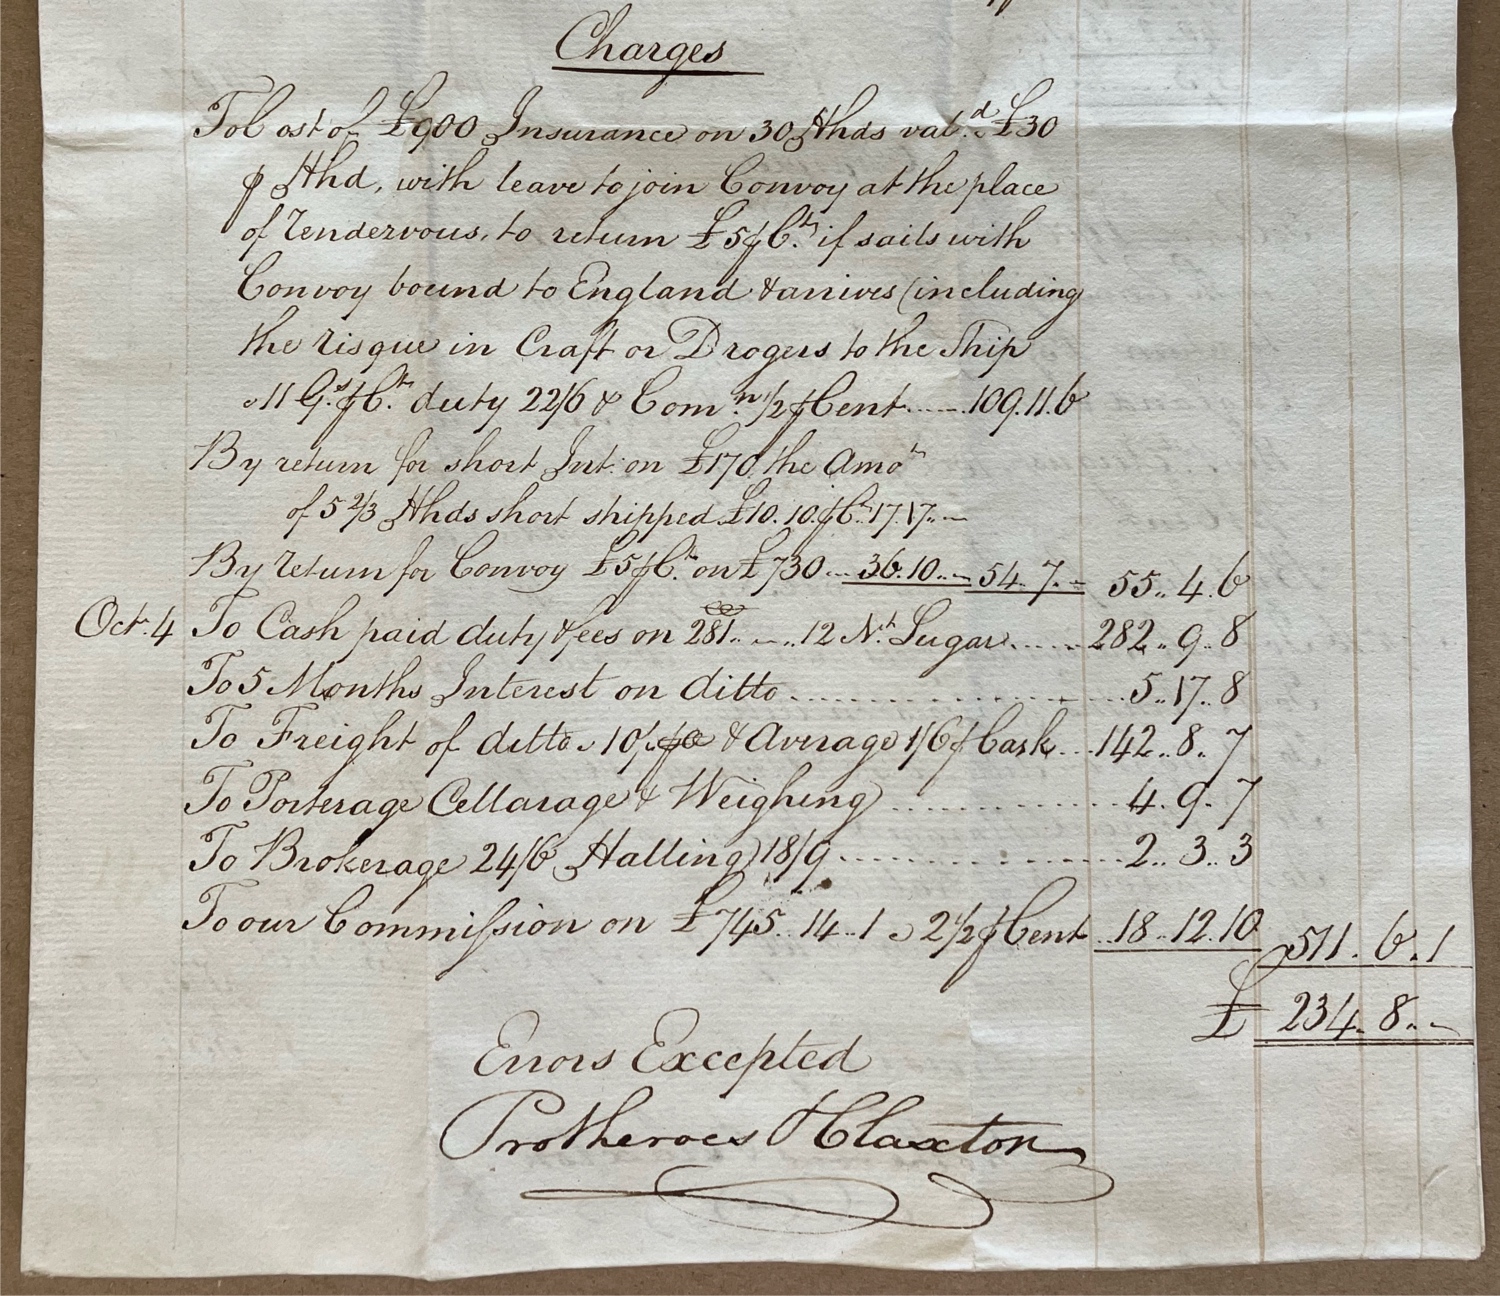 Charges
To Cost of £900 Insurance on 30 Hhds val.d £30
⅌ Hhd, with leave to join Convoy at the place
of Rendervous, to return £5 ⅌ C.t if sails with
Convoy bound to England & arrives (including
the risque in Craft or Drogers to the Ship
a 11 G.s ⅌ C.t duty 22/6 & Com.n 1/2 ⅌ Cent....... 109.11.6
By return for short Int: on £170 the Amo.t
of 5 2/3 Hhds short shipped £10.10 ⅌ C.t 17.17.-
By return for Convoy £5 ⅌ C.t on £730... 36.10..- 54.. 7.- 55.. 4.6
Oct.r 4 To Cash paid duty & fees on 281.. -.. 12 N.t Sugar..... 282.. 9.. 8
To 5 Months Interest on ditto.................... 5..17..8
To Freight of ditto a 10/. & Average 1/6 ⅌ Cask... 142.. 8.. 7
To Porterage Cellarage & Weighing............. 4. 9. 7
To Brokerage 24/6 Halling 18/9................. 2.. 3.. 3
To our Commission on £745.. 14.. 1 a 2 1/2 ⅌ Cent.. 18..12.10 511. 6. 1
£ 234.. 8..-
Errors Excepted
Protheroes & Claxton